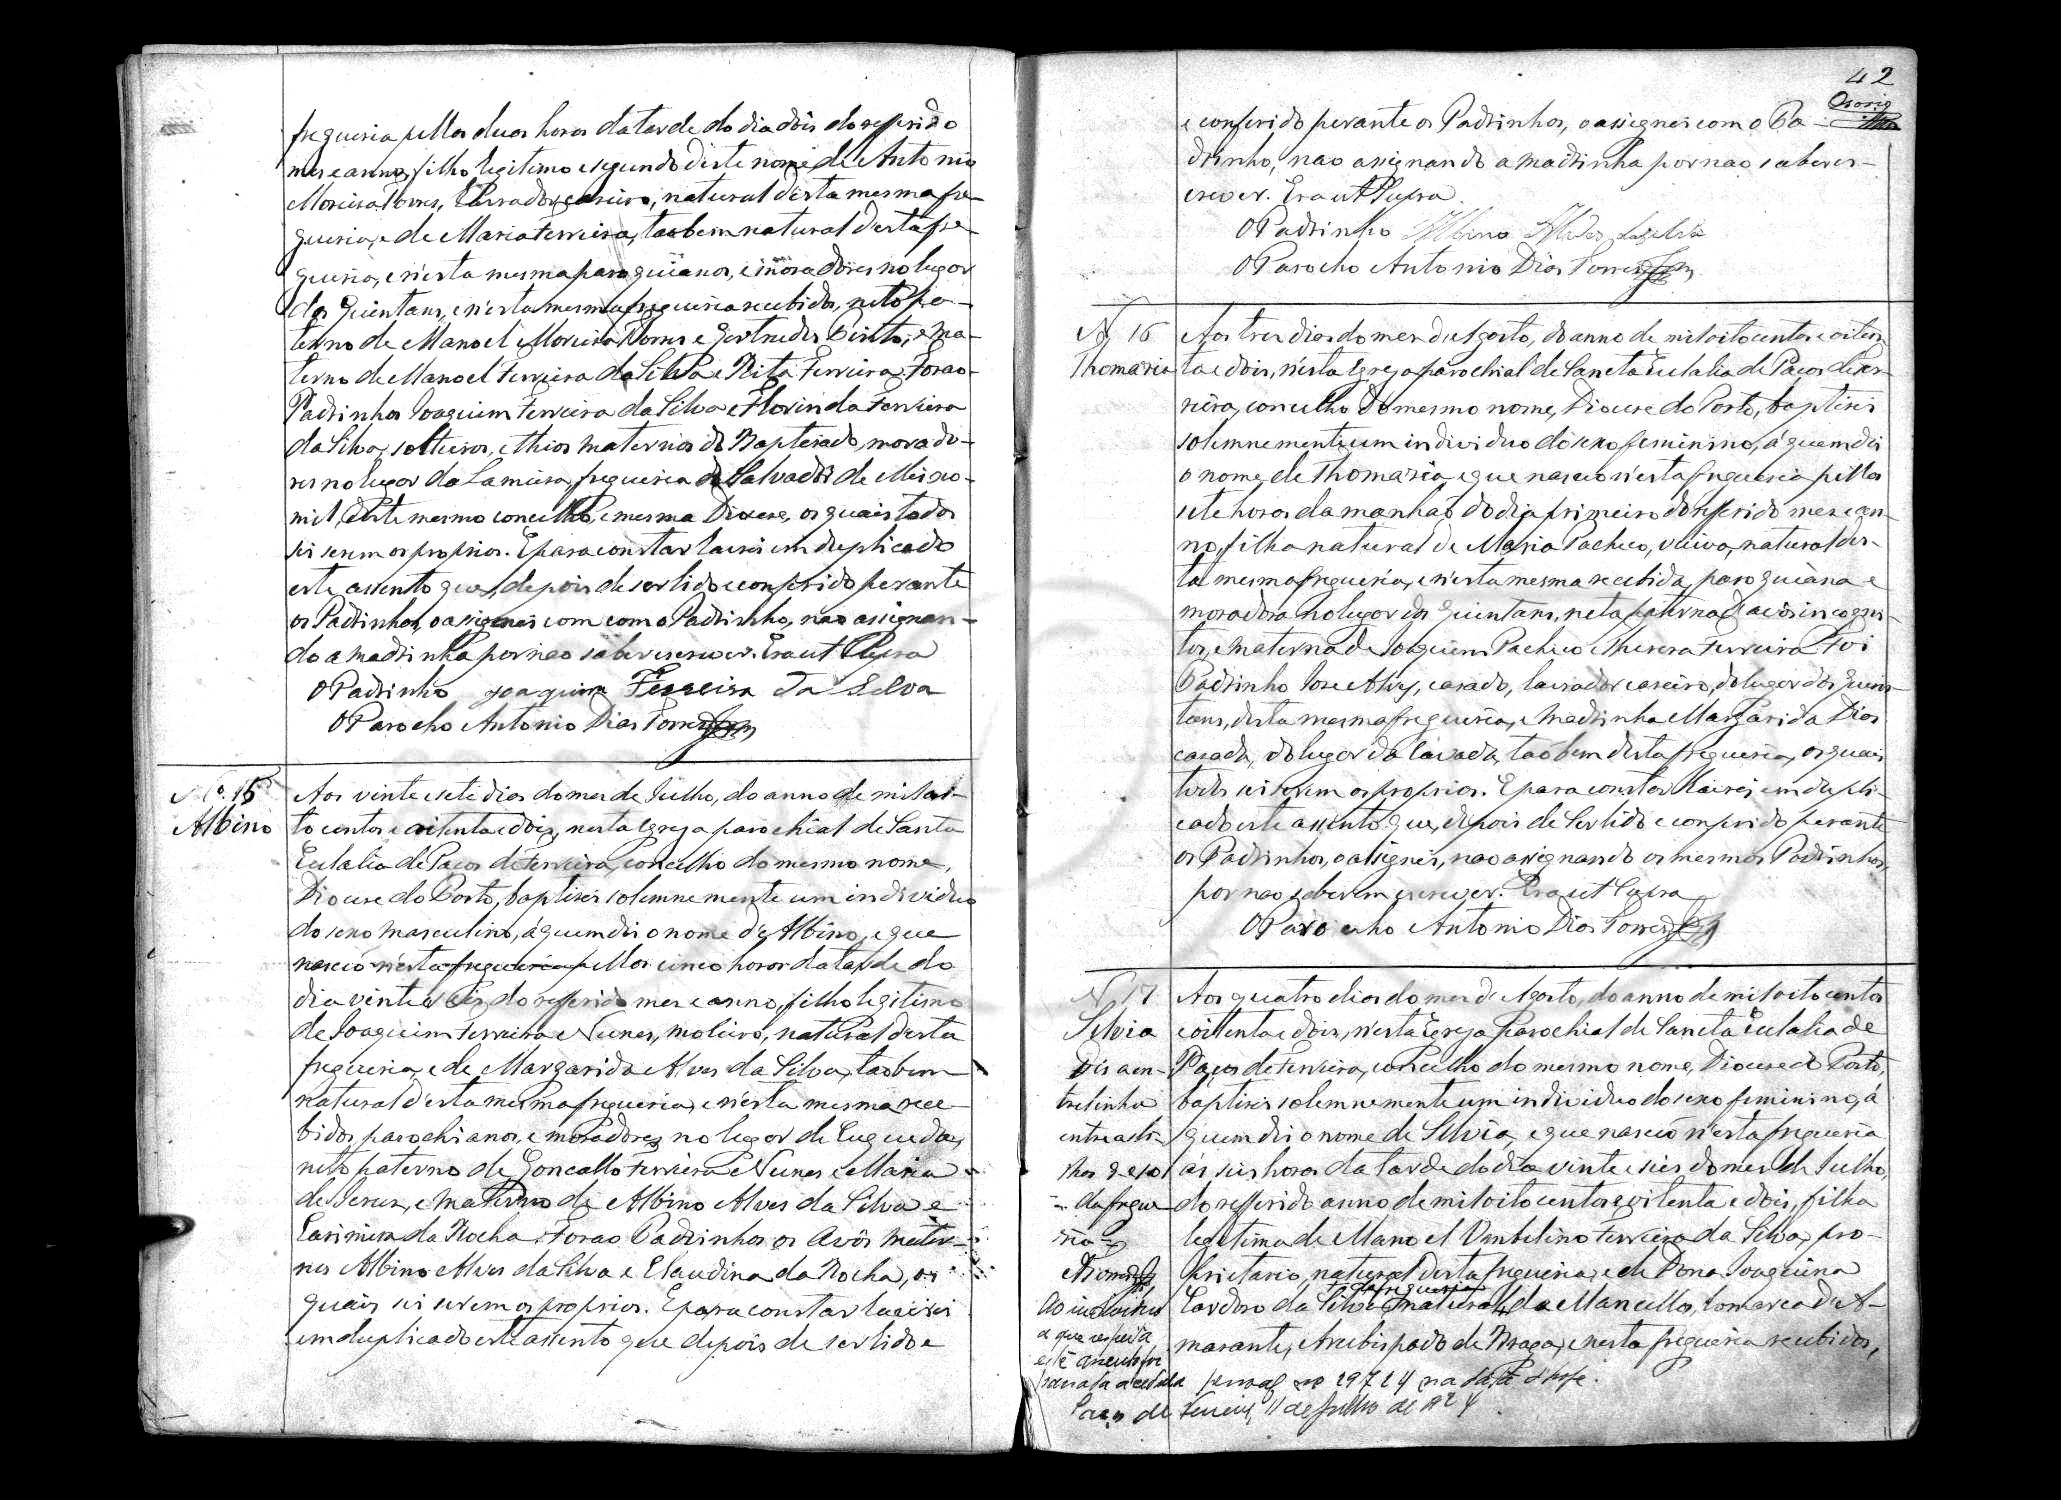 freguesia pellas duas horas da tarde do dia dois do referido
mes e anno, filho legitimo e segundo d'este nome de Antonio
Moreira Torres, Lavrador caseiro, natural d'esta mesma fre-
guesia, e de Maria Ferreira, taobem natural d'esta fre-
guesia, e n'esta mesma paroquianos, e moradores no lugar
das Quintans, e n'esta mesma freguesia recebidos, neto pa-
terno de Manoel Moreira Torres e Gertrudes Pinto, e ma-
terno de Manoel Ferreira da Silva e Rita Ferreira. Forao
Padrinhos Joaquim Ferreira da Silva e Florinda Ferreira
da Silva, solteiros, e thios maternos do Baptisado, morado-
res no lugar da Lameira, freguesia do Salvador de Meixo-
mil, d'este mesmo concelho, e mesma Diocese, os quais todos
sei serem os proprios. E para constar lavrei em duplicado
este assento que, depois de ser lido e conferido perante
os Padrinhos, o assignei com como Padrinho, nao assignan-
do a madrinha por nao saber escrever. Era ut Supra
O Padrinho Joaquim Ferreira da Silva
O Parocho Antonio Dias Torres
Nº. 15
Albino
Aos vinte e sete dias do mes de Julho, do anno de mil oi-
to centos e oitenta e dois, nesta Igreja parochial de Santa
Eulalia de Paços de Ferreira, concelho do mesmo nome,
Diocese do Porto, baptisei solemnemente um individuo
do sexo masculino, á quem dei o nome de Albino, e que
nasceo n'esta freguesia pellas cinco horas da tarde do
dia vinte e seis do referido mes e anno, filho legitimo
de Joaquim Ferreira Nunes, moleiro, natural desta
freguesia, e de Margarida Alves da Silva, taobem
natural d'esta mesma freguesia, e n'esta mesma rece-
bidos, parochianos, e moradores no lugar de
neto paterno de Goncallo Ferreira Nunes e Maria
de Jesus, e materno de Albino Alves da Silva e
da Rocha. Forao Padrinhos os Avós mater-
nos Albino Alves da Silva e Claudina da Rocha, os
quais sei serem os proprios. E para constar lavrei
em duplicado este assento que depois de ser lido e
42
e conferido perante os Padrinhos, o assignei com o Pa-
drinho, nao assignando a madrinha por nao saber es-
crever. Era ut Supra.
O Padrinho Albino Alves da Silva
O Parocho Antonio Dias Torres
Nº 16
Thomasia
Aos tres dias do mes de Agosto, do anno de mil oito centos e oiten-
ta e dois, n'esta Igreja parochial de Sancta Eulalia de Paços de Fer-
reira, concelho do mesmo nome, Diocese do Porto, baptisei
solemnemente um individuo do sexo feminino, á quem dei
o nome de Thomasia, e que nasceo n'esta freguesia pellas
sete horas da manhaõ do dia primeiro do referido mes e an-
no, filha natural de Maria Pacheco, viuva, natural des-
ta mesma freguesia, e n'esta mesma recebida, paroquiana e
moradora no lugar das Quintans, neta paterna d'avós incogni-
tos, e materna de Joaquim Pacheco e Theresa Ferreira. Foi
Padrinho Jose Alves, casado, lavrador caseiro, do lugar das Quin-
tans, desta mesma freguesia, e Madrinha Margarida Dias
casada, do lugar da Cavada, taobem desta freguesia, os quais
todos sei serem os proprios. E para constar lavrei em dupli-
cado este assento que, depois de ser lido e conferido perante
os Padrinhos, o assignei, nao assignando os mesmos Padrinhos,
por nao saberem escrever. Era ut Supra
O Parocho Antonio Dias Torres
Nº 17
Silvia
Aos quatro dias do mes de Agosto, do anno de mil oito centos
e oitenta e dois, n'esta Egreja Parochial de Sancta Eulalia de
Paços de Ferreira, concelho do mesmo nome, Diocese do Porto,
baptisei solemnemente um individuo do sexo feminino, á
quem dei o nome de Silvia, e que nasceo n'esta freguesia
ás seis horas da tarde do dia vinte e seis do mes de Julho,
do referido anno de mil oito centos e oitenta e dois, filha
legitima de Manoel Umbelino Ferreira da Silva, pro-
prietario, natural desta freguesia, e de Dona Joaquina
Cardoso da Silva, natural da freguesia de Mancellos, comarca d'A-
marante, Arcebispado de Braga, e nesta freguesia recebidos,
Diz a en-
trelinha
entre as li-
nhas 9 e 10
= da fregue
sia =
Torres
Ao individuo
a que respeita
este assento foi
passada a cedula pessoal nº 29724 na data d'hoje.
Paços de Ferreira, 11 de Julho de 1924